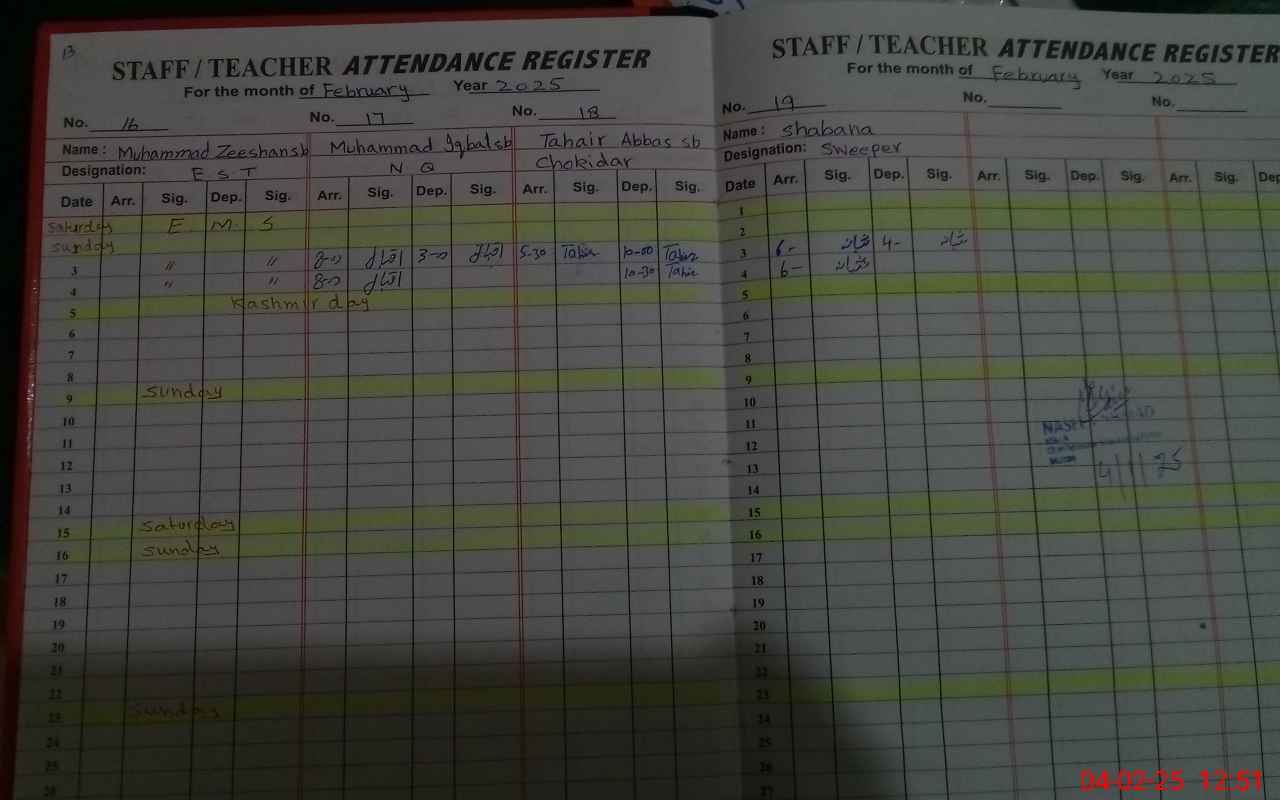 13
STAFF / TEACHER ATTENDANCE REGISTER
For the month of February Year 2025
No. 16 No. 17 No. 18
Name : Muhammad Zeeshan sb Muhammad Iqbal sb Tahair Abbas sb
Designation: E S T N Q Chokidar
Date Arr. Sig. Dep. Sig. Arr. Sig. Dep. Sig. Arr. Sig. Dep. Sig.
Saturday E. M. S
Sunday
3 〃 〃 8-00 اقبال 3-00 اقبال 5-30 Tahir 10-00 Tahir
4 〃 〃 8-00 اقبال 10-30 Tahir
5 Kashmir day
6
7
8
9 Sunday
10
11
12
13
14
15 Saturday
16 Sunday
17
18
19
20
21
22
23 Sunday
24
25
26
STAFF / TEACHER ATTENDANCE REGISTER
For the month of February Year 2025
No. 19 No. No.
Name : Shabana
Designation: Sweeper
Date Arr. Sig. Dep. Sig. Arr. Sig. Dep. Sig. Arr. Sig. Dep
1
2
3 6- شبانہ 4- شبانہ
4 6- شبانہ
5
6
7
8
9
10
11
12
13
14
15
16
17
18
19
20
21
22
23
24
25
26
27
04-02-25 12:51